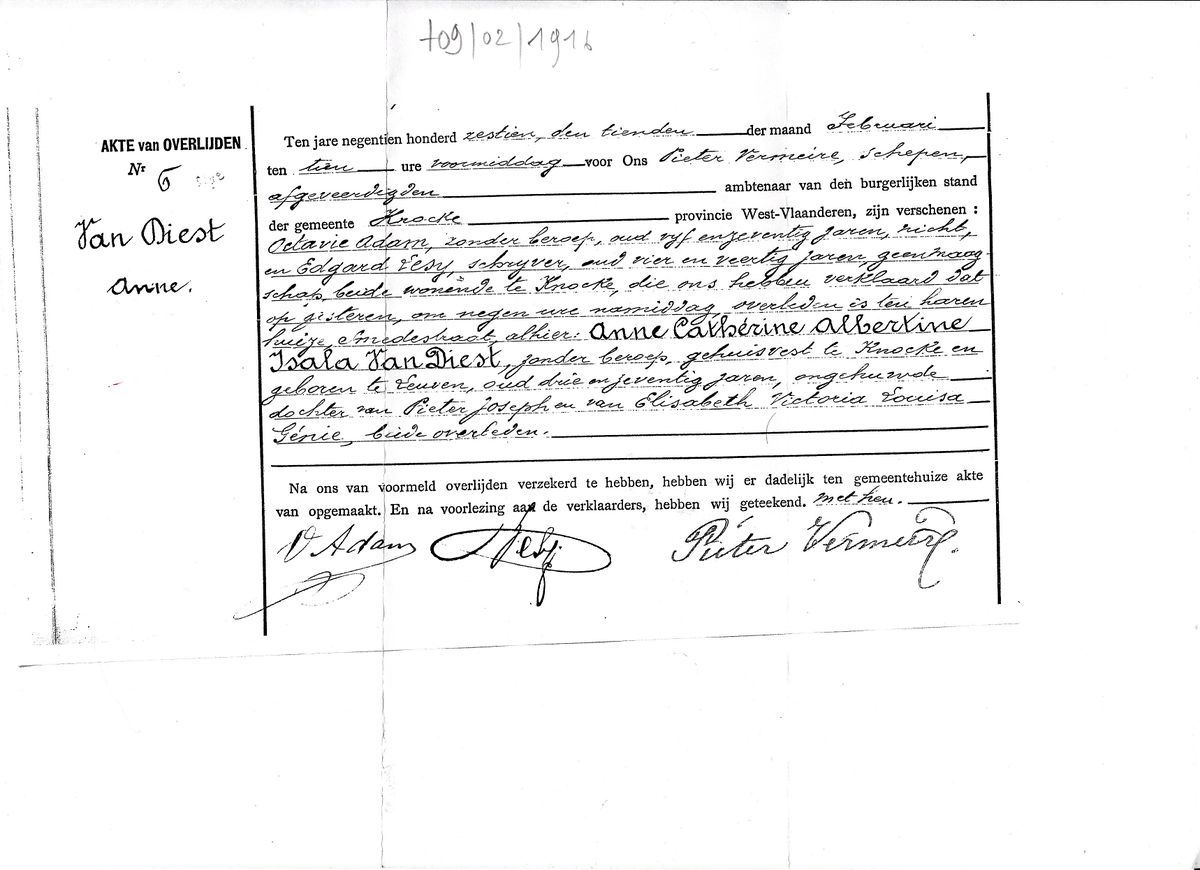 +09/02/1916
AKTE van OVERLIJDEN
Nr 6
Van Diest
Anne.
Ten jare negentien honderd zestien, den tienden der maand Februari
ten tien ure voormiddag voor Ons Pieter Vermeire, schepen,
afgeveerdigden ambtenaar van den burgerlijken stand
der gemeente Knocke provincie West-Vlaanderen, zijn verschenen :
Octavie Adam, zonder beroep, oud vijf en zeventig jaren, nicht,
en Edgard Lesy, schrijver, oud vier en veertig jaren, geen maag
schap, beide wonende te Knocke, die ons hebben verklaard dat
op gisteren, om negen ure namiddag, overleden is ten haren
huize Smedestraat, alhier: Anne Cathérine Albertine
Isala Van Diest, zonder beroep, gehuisvest te Knocke en
geboren te Leuven, oud drie en zeventig jaren, ongehuwde
dochter van Pieter Joseph en van Elisabeth Victoria Louisa
Génie, beide overleden.
Na ons van voormeld overlijden verzekerd te hebben, hebben wij er dadelijk ten gemeentehuize akte
van opgemaakt. En na voorlezing aan de verklaarders, hebben wij geteekend. met hen.
O Adam Lesy Pieter Vermeire.